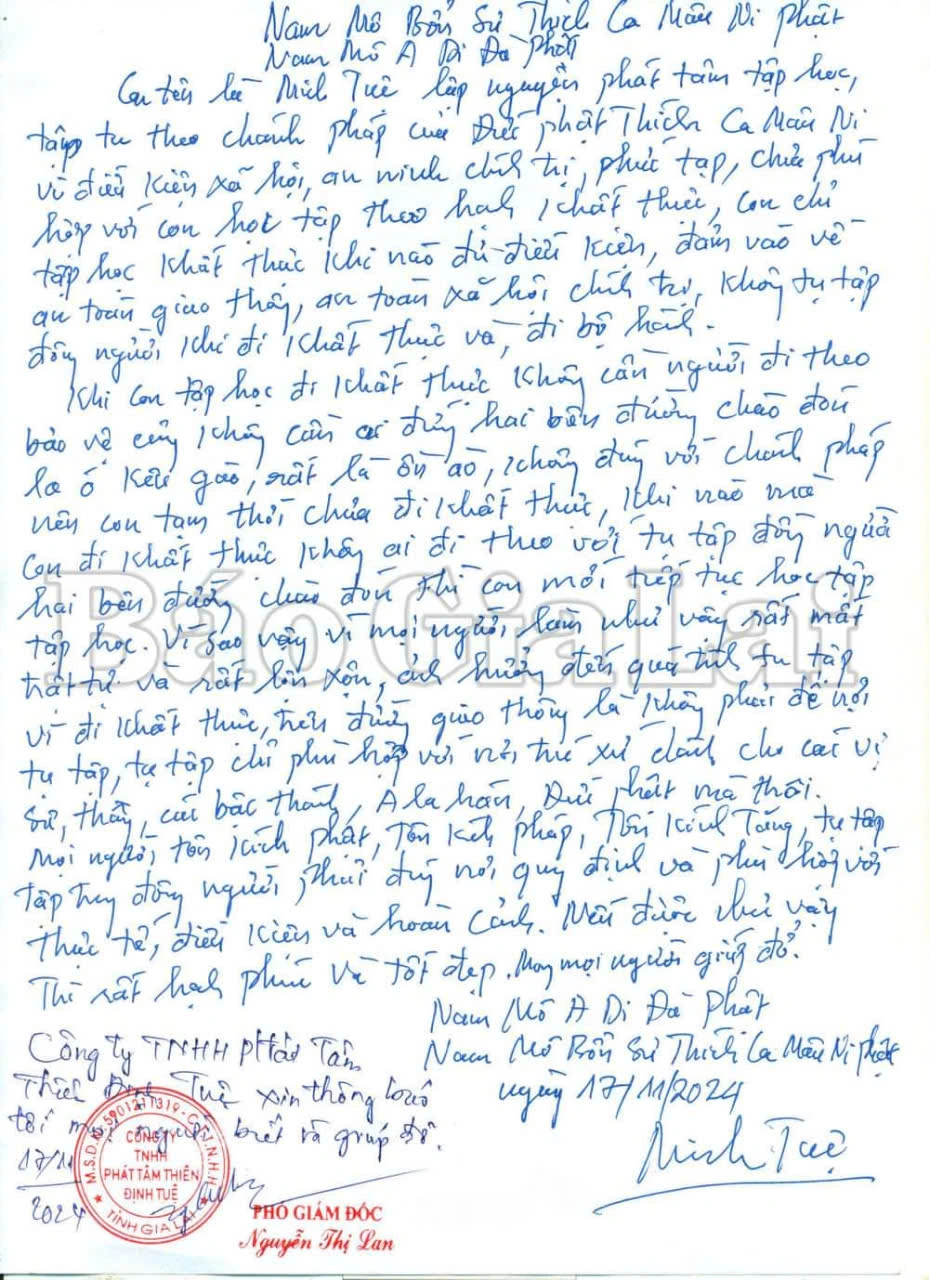 Nam Mô Bổn Sư Thích Ca Mâu Ni Phật
Nam Mô A Di Đà Phật
Con tên là Minh Tuệ lập nguyện phát tâm tập học,
tập tu theo chánh pháp của Đức phật Thích Ca Mâu Ni
vì điều kiện xã hội, an ninh chính trị, phức tạp, chưa phù
hợp với con học tập theo hạnh khất thực, con chỉ
tập học khất thực khi nào đủ điều kiện, đảm vảo về
an toàn giao thông, an toàn xã hội chính trị, không tụ tập
đông người khi đi khất thực và, đi bộ hành.
Khi con tập học đi khất thực không cần người đi theo
bảo vệ cũng không cần ai đứng hai bên đường chào đón
la ó kêu gào, rất là ồn ào, không đúng với chánh pháp
nên con tạm thời chưa đi khất thực, khi nào mà
con đi khất thực không ai đi theo với tụ tập đông người
hai bên đường chào đón thì con mới tiếp tục học tập
tập học. Vì sao vậy vì mọi người làm như vậy rất mất
trật tự và rất lộn xộn, ảnh hưởng đến quá trình tu tập
vì đi khất thực, trên đường giao thông là không phải để nơi
tụ tập, tụ tập chỉ phù hợp với nơi, trú xứ dành cho các vị
sư, thầy, các bậc thánh, A la hán, Đức phật mà thôi.
Mọi người tôn kính phật, Tôn kính pháp, Tôn kính Tăng, tụ tập
tập trung đông người phải đúng nơi quy định và phù hợp với
thực tế, điều kiện và hoàn cảnh. Nếu được như vậy
Thì rất hạnh phúc và tốt đẹp. Mong mọi người giúp đỡ.
Nam Mô A Di Đà Phật
Nam Mô Bổn Sư Thích Ca Mâu Ni phật
ngày 17/11/2024
Minh Tuệ
Công ty TNHH phát Tâm
Thiền Định Tuệ xin thông báo
tới mọi người biết và giúp đỡ.
17/11
2024
M.S.D.N: 5901211319 - C.T.T.N.H.H
CÔNG TY
TNHH
PHÁT TÂM THIỀN
ĐỊNH TUỆ
TỈNH GIA LAI
PHÓ GIÁM ĐỐC
Nguyễn Thị Lan
Báo Gia Lai